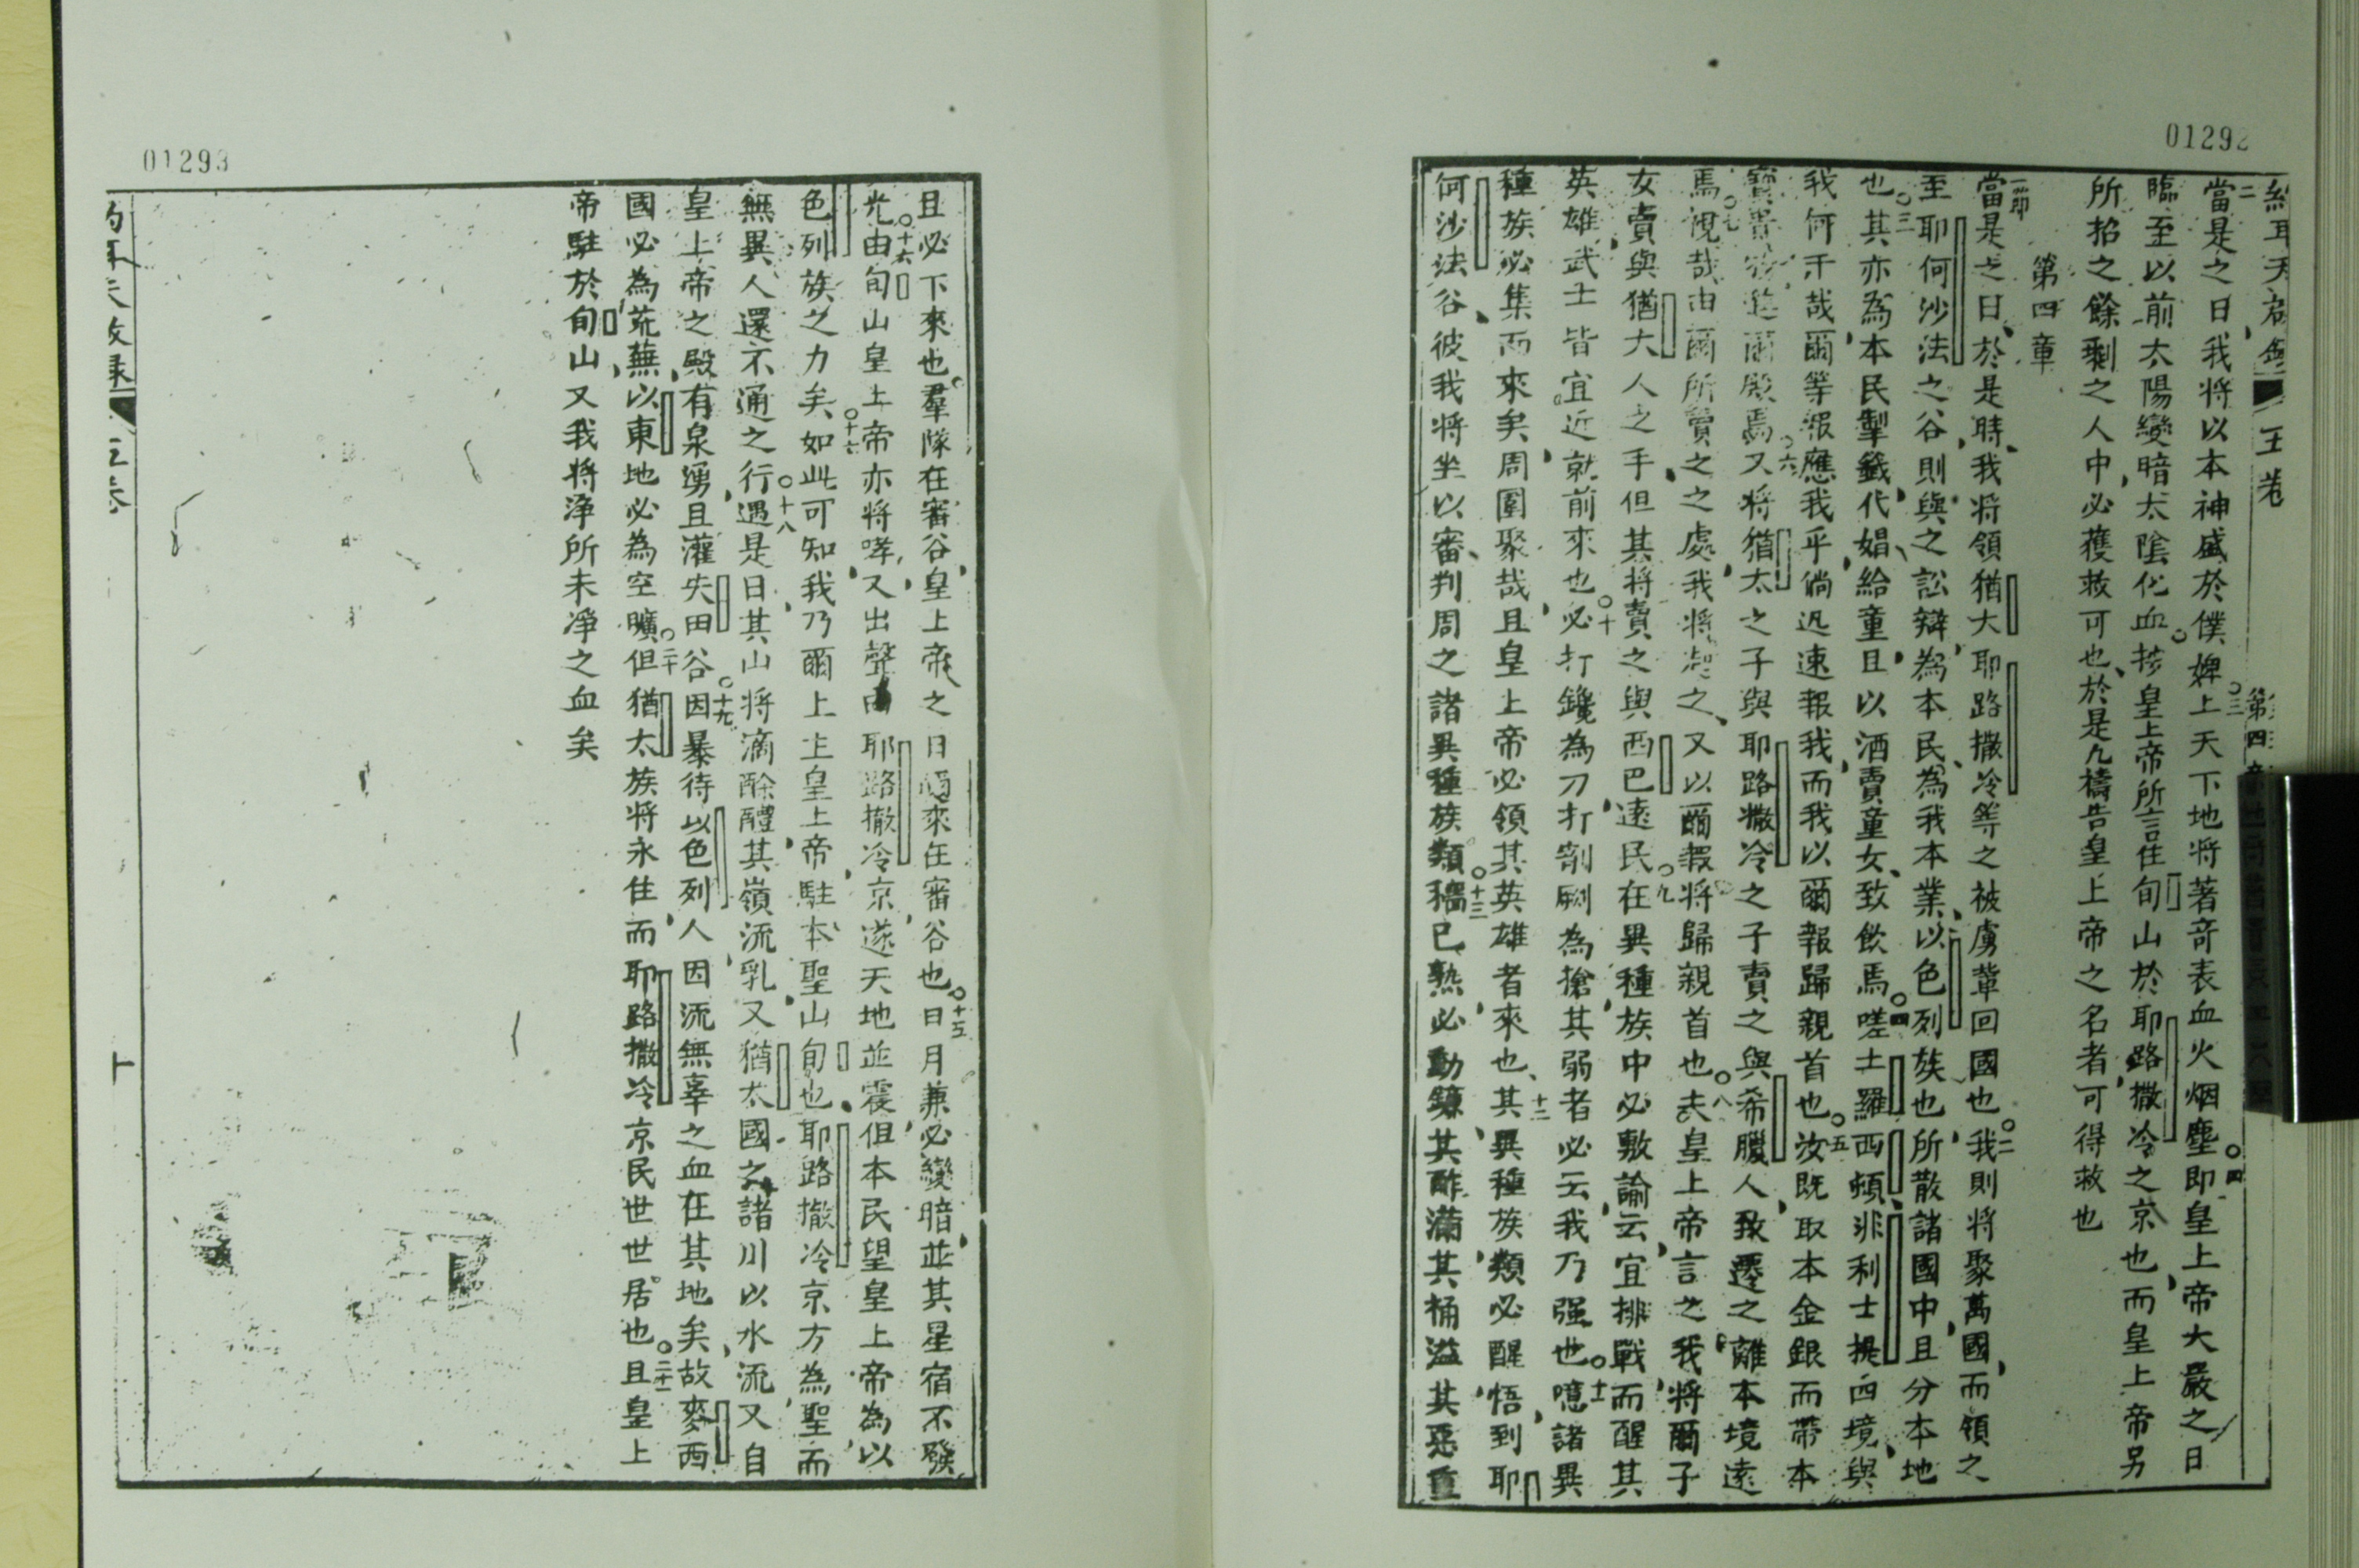 01292
當是之日我將以本神盛於僕婢上天下地將著奇表血火烟塵即皇上帝大嚴之日
臨至以前太陽變暗太陰化血扵皇上帝所言住旬山於耶路撒冷之京也而皇上帝另
所招之餘剩之人中必獲救可也於是凡禱告皇上帝之名者可得救也
第四章
當是之日於是時我將領猶大耶路撒冷等之被虜輩回國也我則將聚萬國而領之
至耶何沙法之谷則與之訟辯為本民為我本業以色列族也所散諸國中且分本地
也其亦為本民掣籤代娼給童且以酒賣童女致飲焉嗟土羅西頓非利士提四境與
我何干哉爾等報應我乎倘迅速報我而我以爾報歸親首也汝既取本金銀而帶本
寶進爾殿焉又將猶太之子與耶路撒冷之子賣之與希臘人致遷之離本境遠
焉哉由爾所賣之之處我將起之又以爾報將歸親首也夫皇上帝言之我將爾子
女賣與猶大人之手但其將賣之與西巴遠民在異種族中必敷諭云宜排戰而醒其
英雄武士皆宜近就前來也必打鑱為刀打割刷為搶其弱者必云我乃强也噫諸異
種族必集而來矣周圍聚哉且皇上帝必領其英雄者來也其異種族類必醒悟到耶
何沙法谷彼我將坐以審判周之諸異種族類穡已熟必動鐮其酢滿其桶溢其惡重
01293
且必下來也羣隊在審谷皇上帝之日順來在審谷也日月兼必變暗並其星宿不發
光由旬山皇上帝亦將哮又出聲由耶路撒冷京遂天地並震但本民望皇上帝為以
色列族之力矣如此可知我乃爾上主皇上帝駐本聖山旬也耶路撒冷京方為聖而
無異人還不通之行遇是日其山將滴酴醴其嶺流乳又猶太國之諸川以水流又自
皇上帝之殿有泉湧且灌失田谷因暴待以色列人因流無辜之血在其地矣故麥西
國必為荒蕪以東地必為空曠但猶太族將永住而耶路撒冷京民世世居也且皇上
帝駐於旬山又我將淨所未凈之血矣
十